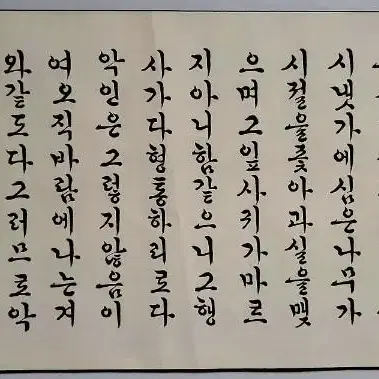 시냇가에심은나무가
시절을좇아과실을맺
으며그잎사귀가마르
지아니함같으니그행
사가다형통하리로다
악인은그렇지않음이
여오직바람에나는겨
와같도다그러므로악